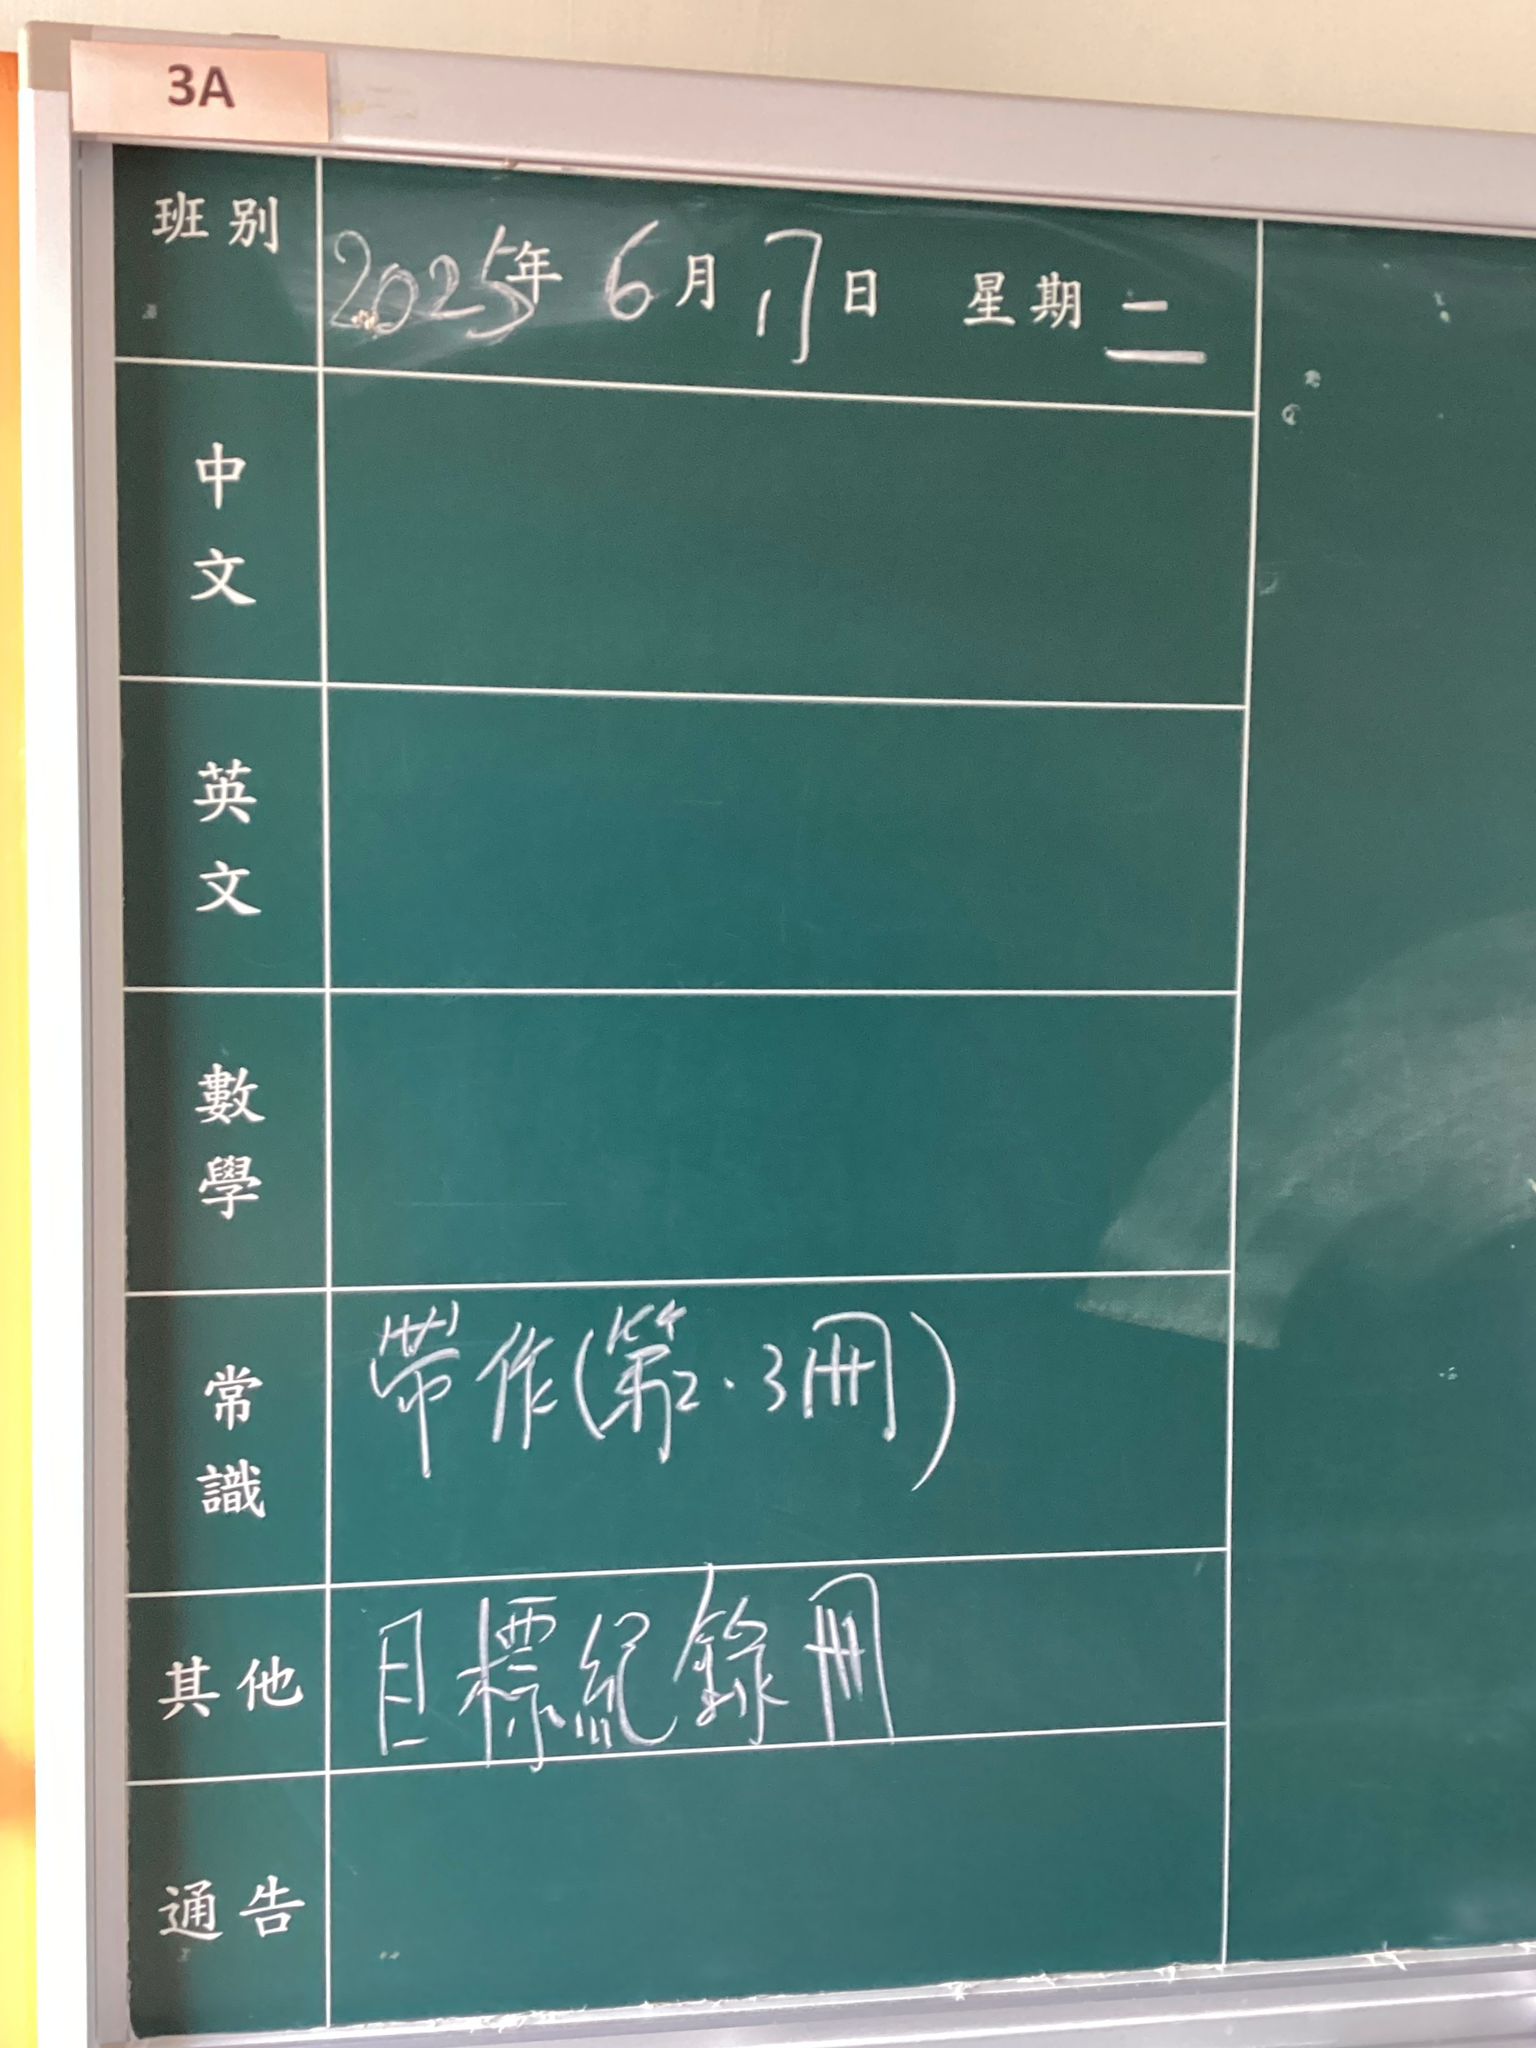 3A
班別 2025年 6月 17日 星期二
中文
英文
數學
常識 帶作(第2.3冊)
其他 目標紀錄冊
通告